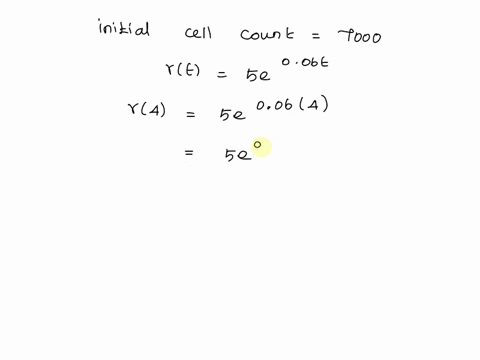 initial cell count = 7000
r(t) = 5e^0.06t
r(4) = 5e^0.06(4)
= 5e^0